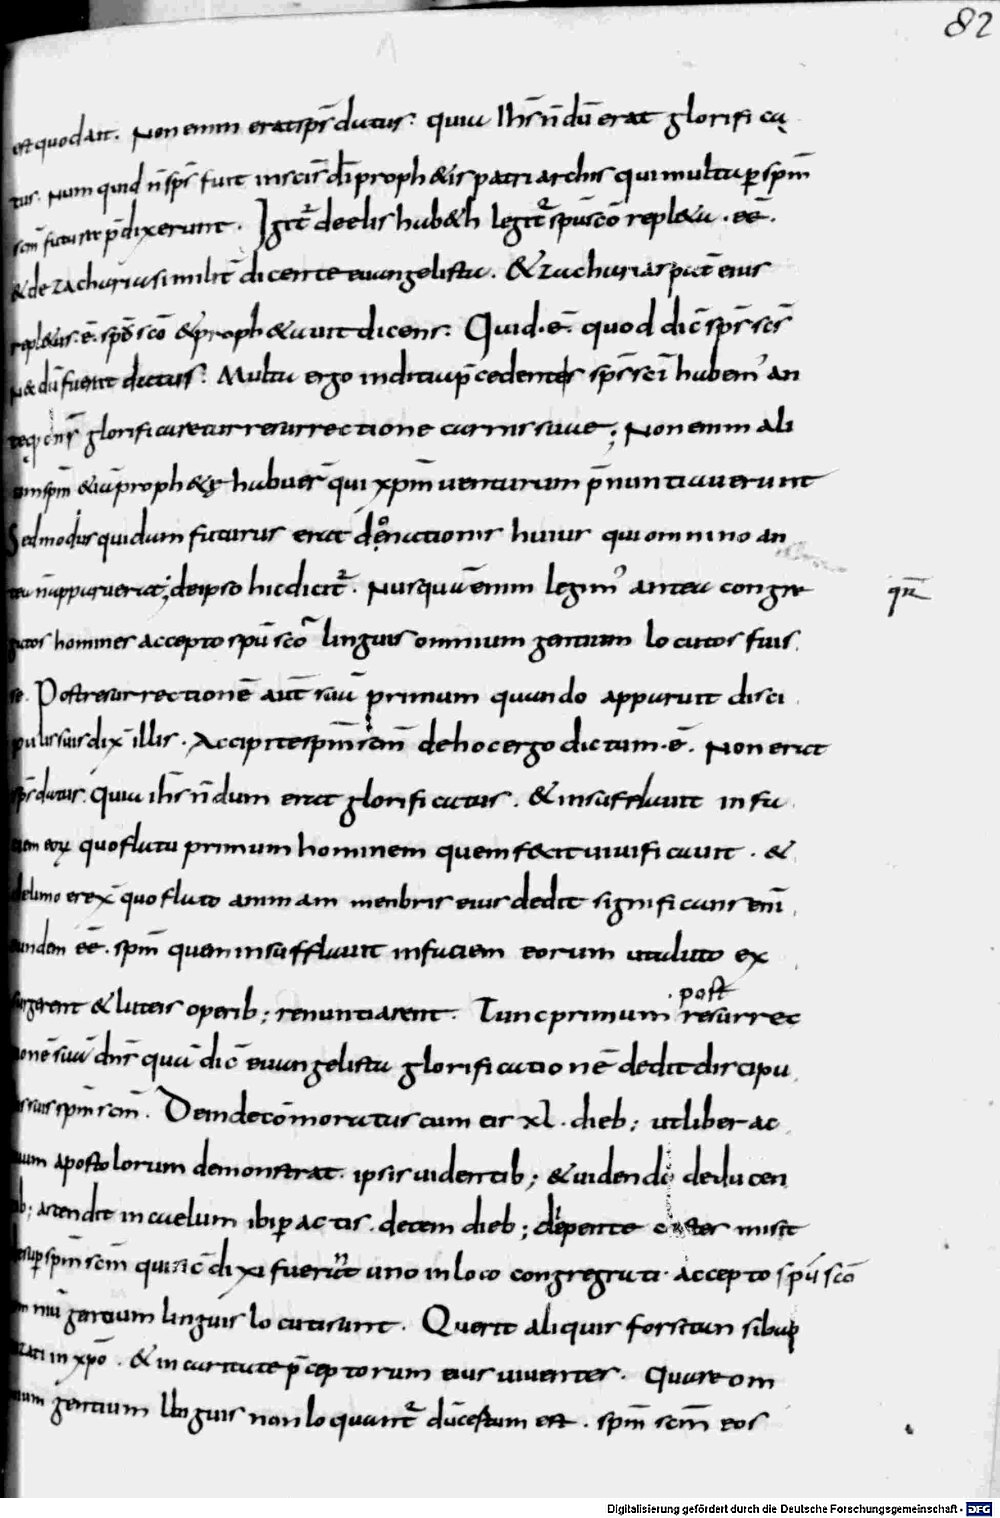 82
est quod ait. Non enim erat sp̄s datus. quia Ih̄s n̄dū erat glorifica
tus. Num quid n̄ sp̄s fuit in sc̄is dī proph&is patriarchis qui multa ꝑ spm̄
scm̄ futura p̄dixerunt. Igit̄ de elishab&h legit̄ spū sc̄o repl&a. eē.
& de zacharia similit̄ dicente euangelista. & zacharias pat̄ eius
repl&us. ē. spū sc̄o & proph&auit dicens. Quid. ē. quod dic̄ sp̄s sc̄s
Nedū fuerat datus. Multa ergo inditia p̄cedentis sp̄s sc̄i habem᾽ an
teq̄ dn̄s glorificaretur resurrectione carnis suae; Non enim ali
um spm̄ &iā proph&ę habuer̄ qui xpm̄ uenturum p̄nuntiauerunt
Sed modus quidam futurus erat donationis huius qui omnino an
tea n̄ apparuerat; de ipso hic dicit̄. Nusquā enim legim᾽ antea congre
gatos homines accepto spū sc̄o linguis omnium gentium locutos fuis
se. Post resurrectionē aut̄ suā primum quando apparuit disci
pulis suis dix̄ illis. Accipite spm̄ scm̄ de hoc ergo dictum. ē. Non erat
sp̄s datus. quia ih̄s n̄dum erat glorificatus. & insufflauit in fa
ciem eoꝝ quo flatu primum hominem quem fecit uiuificauit. &
de limo erex̄ quo flato animam menbris eius dedit significans eum
eundem eē. spm̄ quem insufflauit in faciem eorum ut a luto ex
surgerent & luteis operib; renuntiarent. Tunc primum post resurrec
tionē suā dn̄s quā dic̄ euangelista glorificationē dedit discipu
lis suis spm̄ scm̄. Deinde cōmoratus cum eis xl. dieb; ut liber ac
tuum apostolorum demonstrat. ipsis uidentib; & uidendo deducen
tib; ascendit in caelum ibi peractis. decem dieb; die pente coster misit
desuꝑ spm̄ scm̄ qui sic̄ dixi fuerunt uno in loco congregati. accepto spū sc̄o
omniū gentium linguis locuti sunt. Querit aliquis forsitan si bap
tizati in xpo̅. & in caritate p̄ceptorum eius uiuentes. Quare om
nium gentium linguis non loquant̄ dū cestum est. spm̄ scm̄ eos
Digitalisierung gefördert durch die Deutsche Forschungsgemeinschaft - DFG